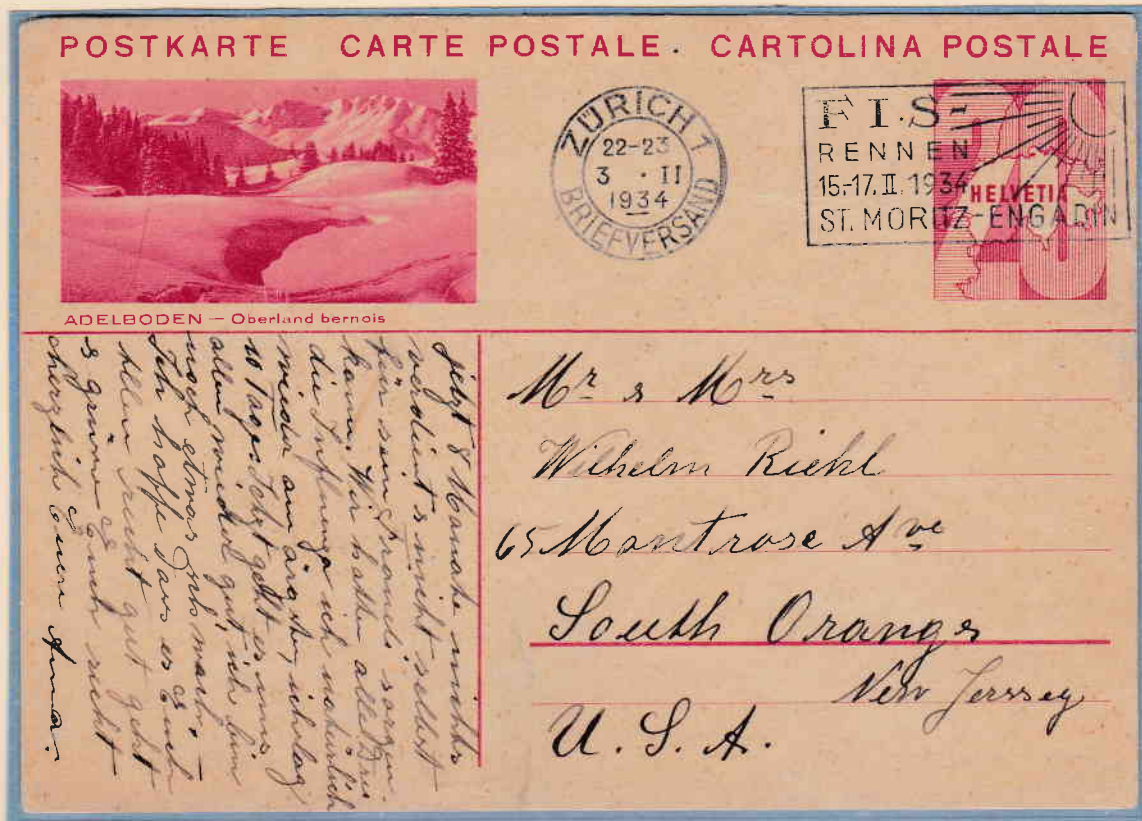 POSTKARTE CARTE POSTALE. CARTOLINA POSTALE
ZÜRICH 1
22-23
3 · II
1934
BRIEFVERSAND
F.I.S-
RENNEN
15.-17.II.1934
ST. MORITZ-ENGADIN
20
HELVETIA
ADELBODEN — Oberland bernois
jetzt 8 Monate nichts
verdient & nicht selbst
für sein sorgen
kann. Wir hatten alle Drei
die Influenza ich natürlich
wieder am ärgsten, ich lag
10 Tage. Jetzt geht es uns
allen wieder gut ich bin
noch etwas schwach.
Ich hoffe dass es Euch
allen recht gut geht
& grüsse Euch recht
herzlich Euere Anna.
Mr & Mrs
Wilhelm Riehl
65 Montrose Ave
South Orange
New Jerssey
U. S. A.